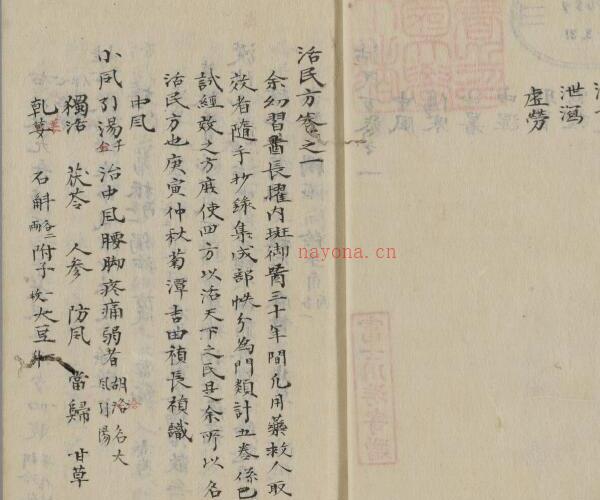 泄瀉
虛勞
富士川游寄贈
活民方卷之一
余幼習醫長擢內班御醫三十年間凡用藥救人取
效者隨手抄錄集成部帙分為門類計五卷係已
試經效之方庶使四方以活天下之民是余所以名
活民方也庚寅仲秋菊潭吉禎長禎識
中風
小風引湯千金治中風腰脚疼痛弱者胡洽名大風引湯
獨活 茯苓 人參 防風 當歸 甘草
乾薑 石斛各二兩 附子一枚 大豆
nayona.cn